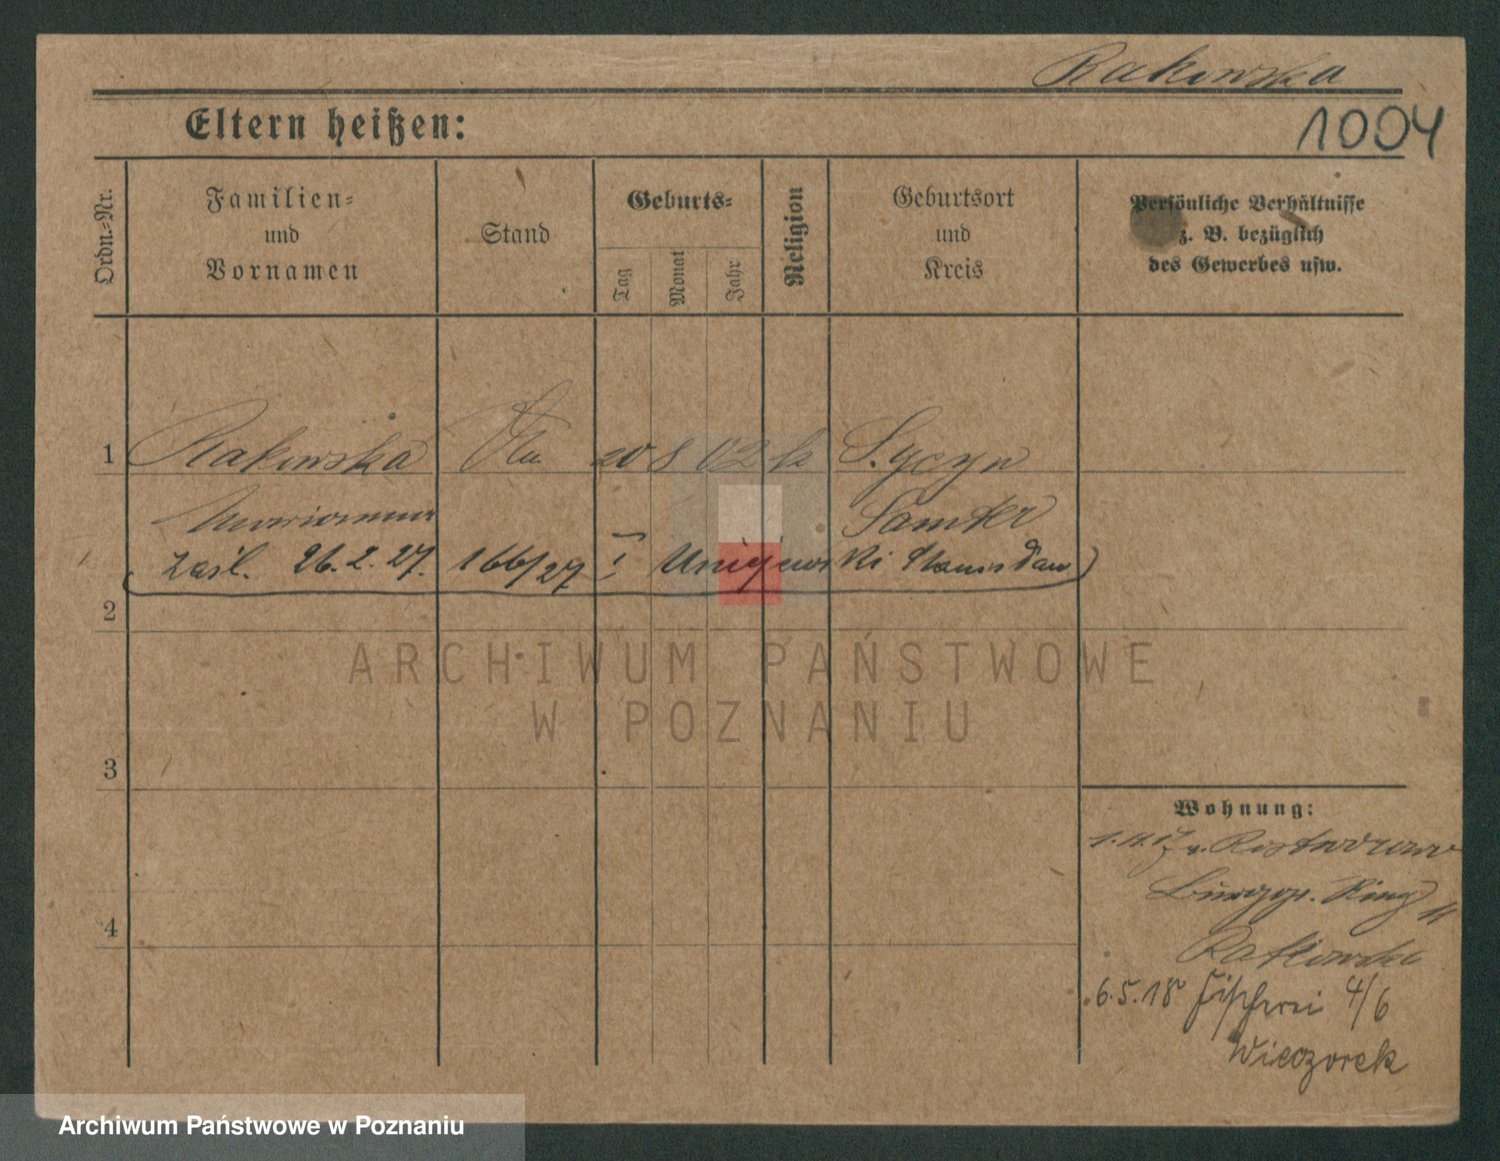 Rakowska
1004
Eltern heißen:
Ordn.-Nr.
Familien-
und
Vornamen
Stand
Geburts-
Tag
Monat
Jahr
Religion
Geburtsort
und
Kreis
Persönliche Verhältnisse
z. B. bezüglich
des Gewerbes usw.
1 Rakowska 20 8 02 k
Marianna Samter
zaśl. 26.2.27. 166/27 I Stanisław
2
3
4
Wohnung:
Ring
Rakowska
6.5.18 Fischerei 4/6
Wieczorek
ARCHIWUM PAŃSTWOWE
W POZNANIU
Archiwum Państwowe w Poznaniu